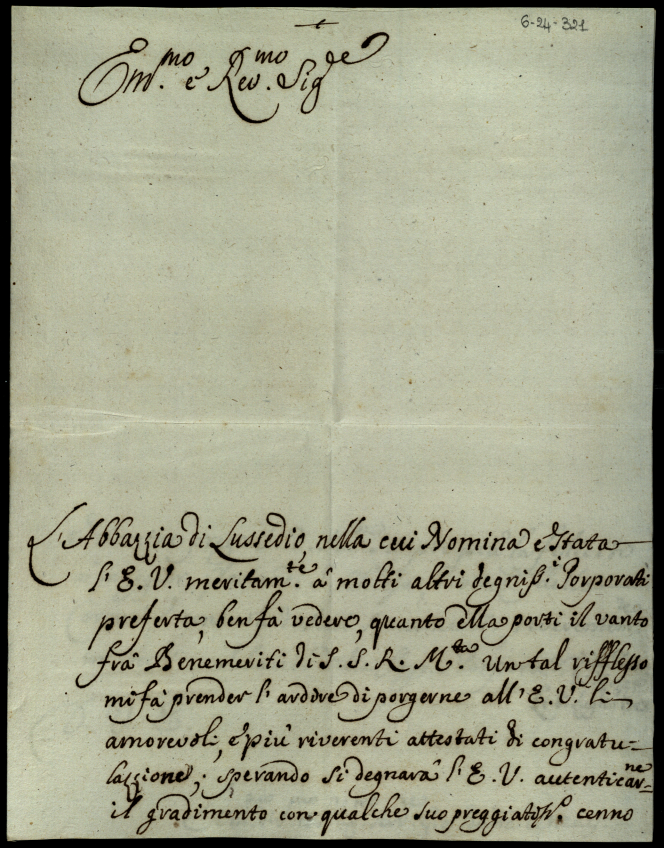 6-24-321
Em.mo e Rev.mo Sig.re
L'Abbazzia di Lussedio, nella cui Nomina è stata
l'E. V. meritam.te à molti altri degniss.i Porporati
preferta, ben fà vedere, quanto ella porti il vanto
frà Benemeriti di S. S. R. M.tà Un tal rifflesso
mi fà prender l'ardire di porgerne all'E. V. li
amorevoli, e più riverenti attestati di congratu-
lazzione, sperando si degnarà l'E. V. autenticarne
il gradimento con qualche suo preggiatiss.o cenno